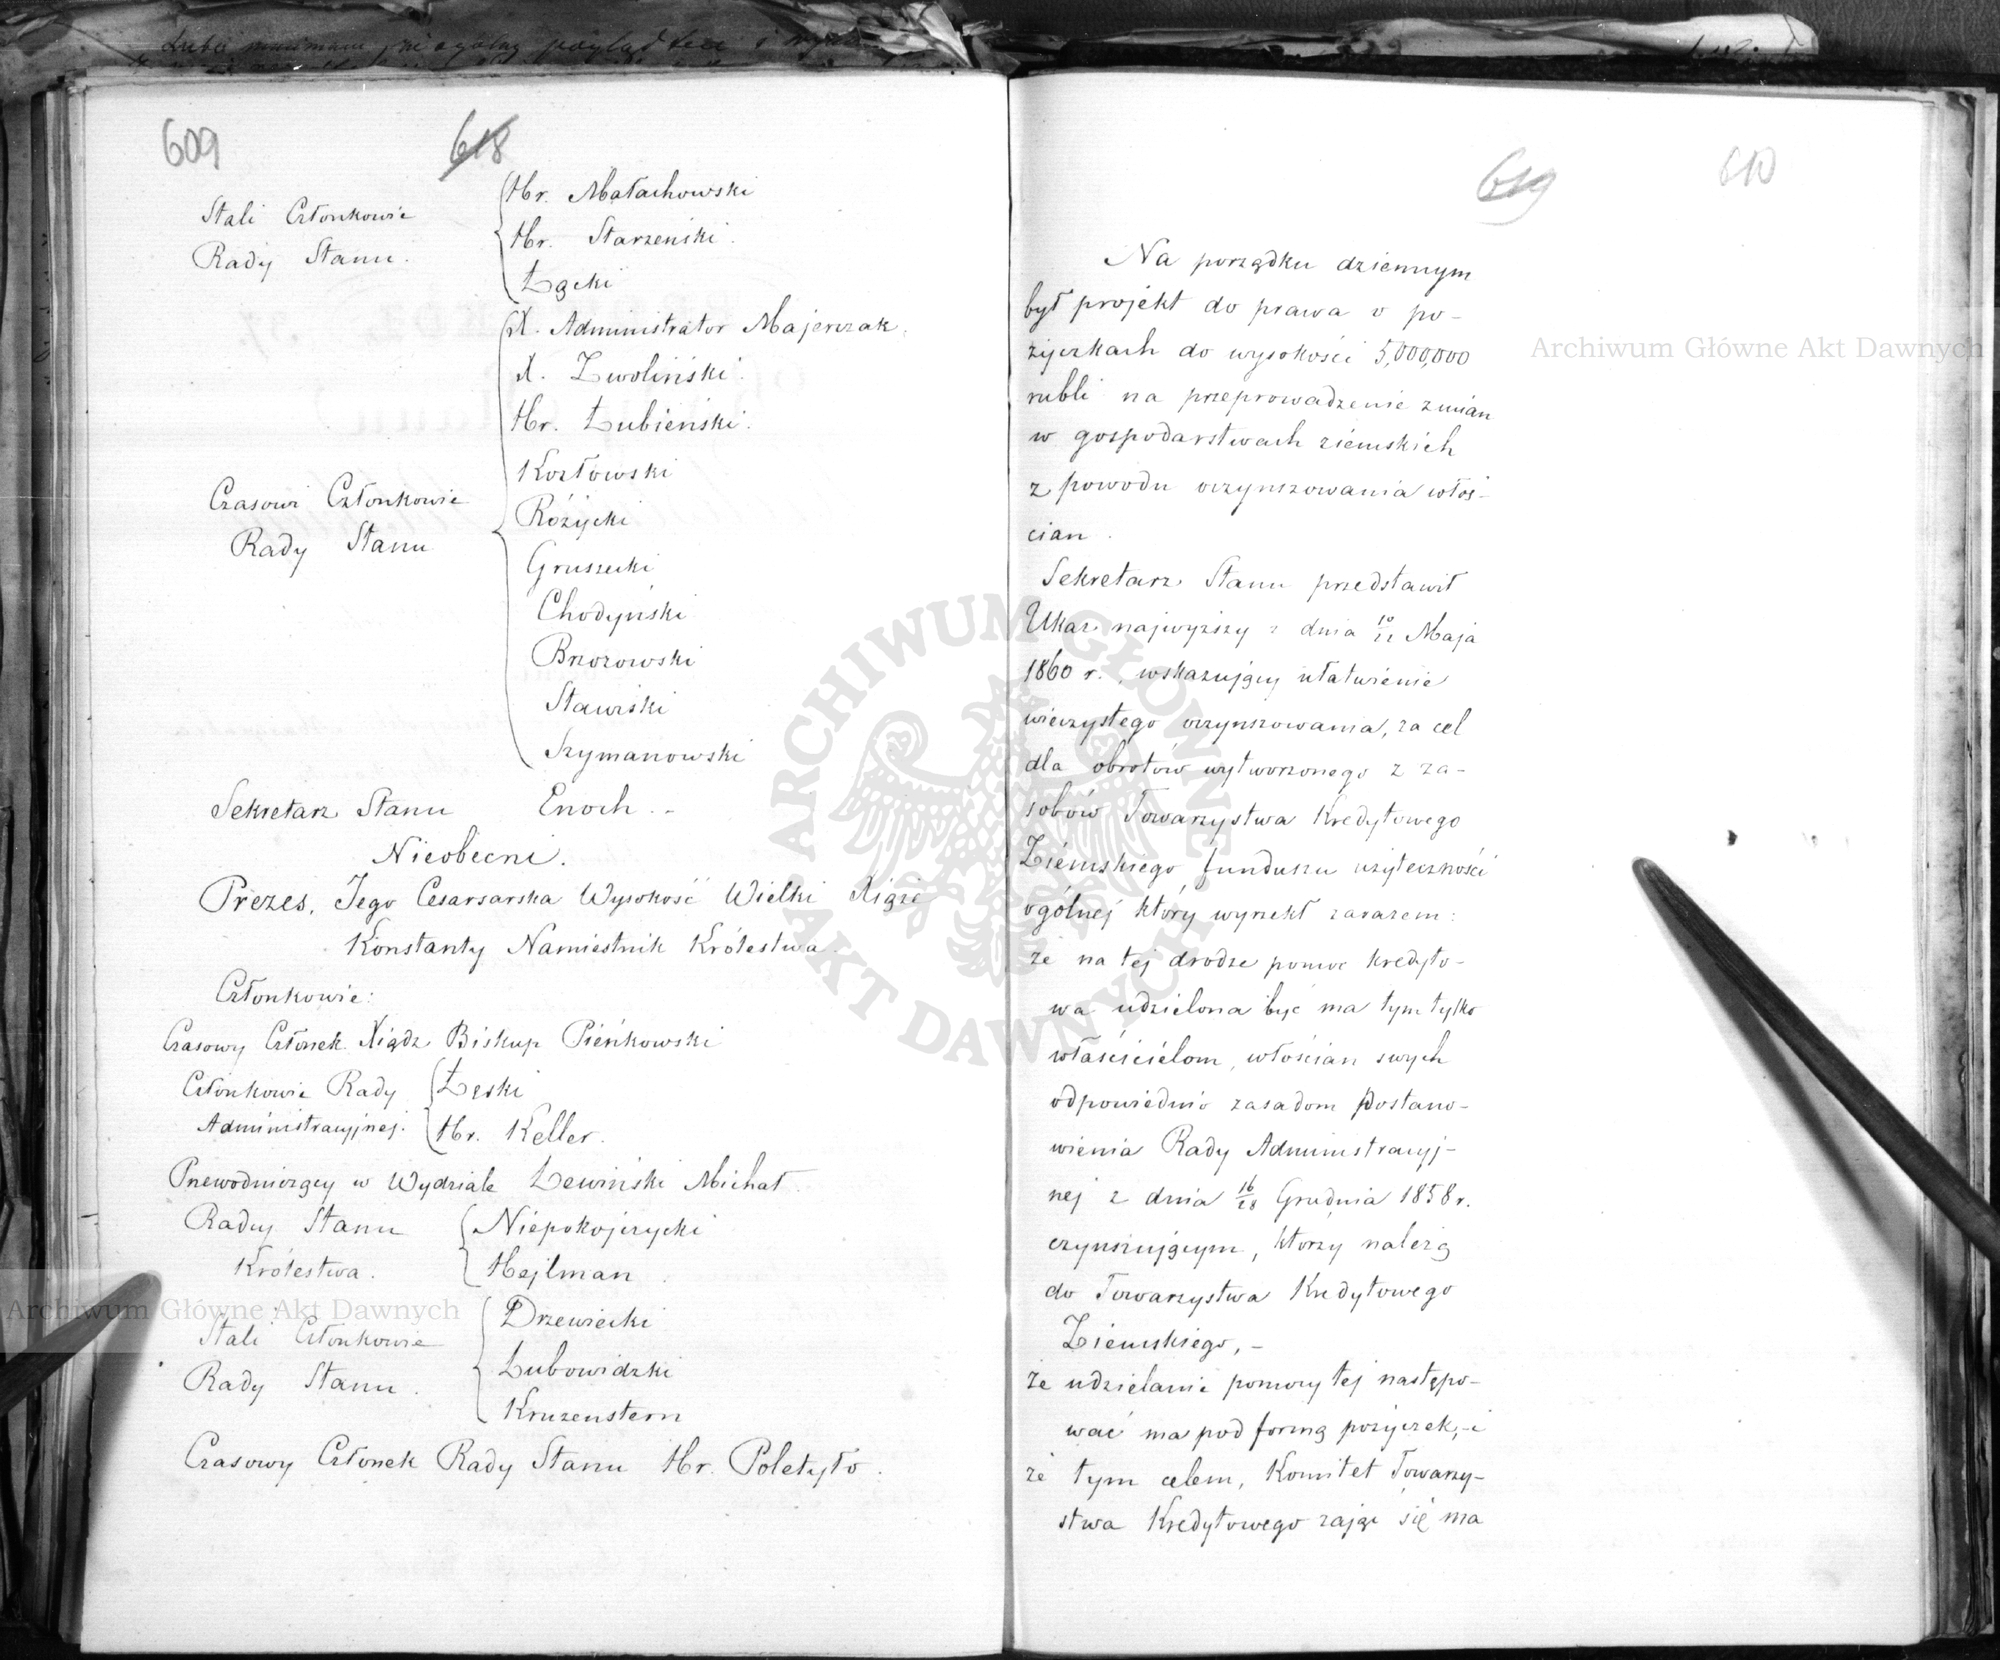 609
618
Stali Członkowie
Rady Stanu.
Hr. Małachowski
Hr. Starzeński.
Łącki
X. Administrator Majerczak.
X. Zwoliński.
Hr. Łubieński.
Kozłowski
Czasowi Członkowie
Rady Stanu
Różycki
Gruszecki
Chodyński
Brzozowski
Stawiski
Szymanowski
Sekretarz Stanu Enoch.
Nieobecni.
Prezes, Jego Cesarsarska Wysokość Wielki Xiążę
Konstanty Namiestnik Królestwa.
Członkowie:
Czasowy Członek Xiądz Biskup Pieńkowski
Członkowie Rady
Administracyjnej.
Łęski
Hr. Keller.
Przewodniczący w Wydziale Lewiński Michał.
Radcy Stanu
Królestwa.
Niepokojczycki
Hejlman.
Stali Członkowie
Rady Stanu.
Drzewiecki
Łubowidzki
Kruzenstern
Czasowy Członek Rady Stanu Hr. Poletyło.
619
610
Na porządku dziennym
był projekt do prawa o po-
życzkach do wysokości 5,000,000
rubli na przeprowadzenie zmian
w gospodarstwach ziemskich
z powodu oczynszowania włoś-
cian.
Sekretarz Stanu przedstawił
Ukaz najwyższy z dnia 10/22 Maja
1860 r., wskazujący ułatwienie
wieczystego oczynszowania, za cel
dla obrotów wytworzonego z za-
sobów Towarzystwa Kredytowego
Ziemskiego funduszu użyteczności
ogólnej który wyrzekł zarazem:
że na tej drodze pomoc kredyto-
wa udzielona być ma tym tylko
właścicielom, włościan swych
odpowiednio zasadom Postano-
wienia Rady Administracyj-
nej z dnia 16/28 Grudnia 1858 r.
czynszującym, którzy należą
do Towarzystwa Kredytowego
Ziemskiego,-
że udzielanie pomocy tej następo-
wać ma pod formą pożyczek,-i
że tym celem, Komitet Towarzy-
stwa Kredytowego zająć się ma
Archiwum Główne Akt Dawnych
Archiwum Główne Akt Dawnych
ARCHIWUM GŁÓWNE AKT DAWNYCH